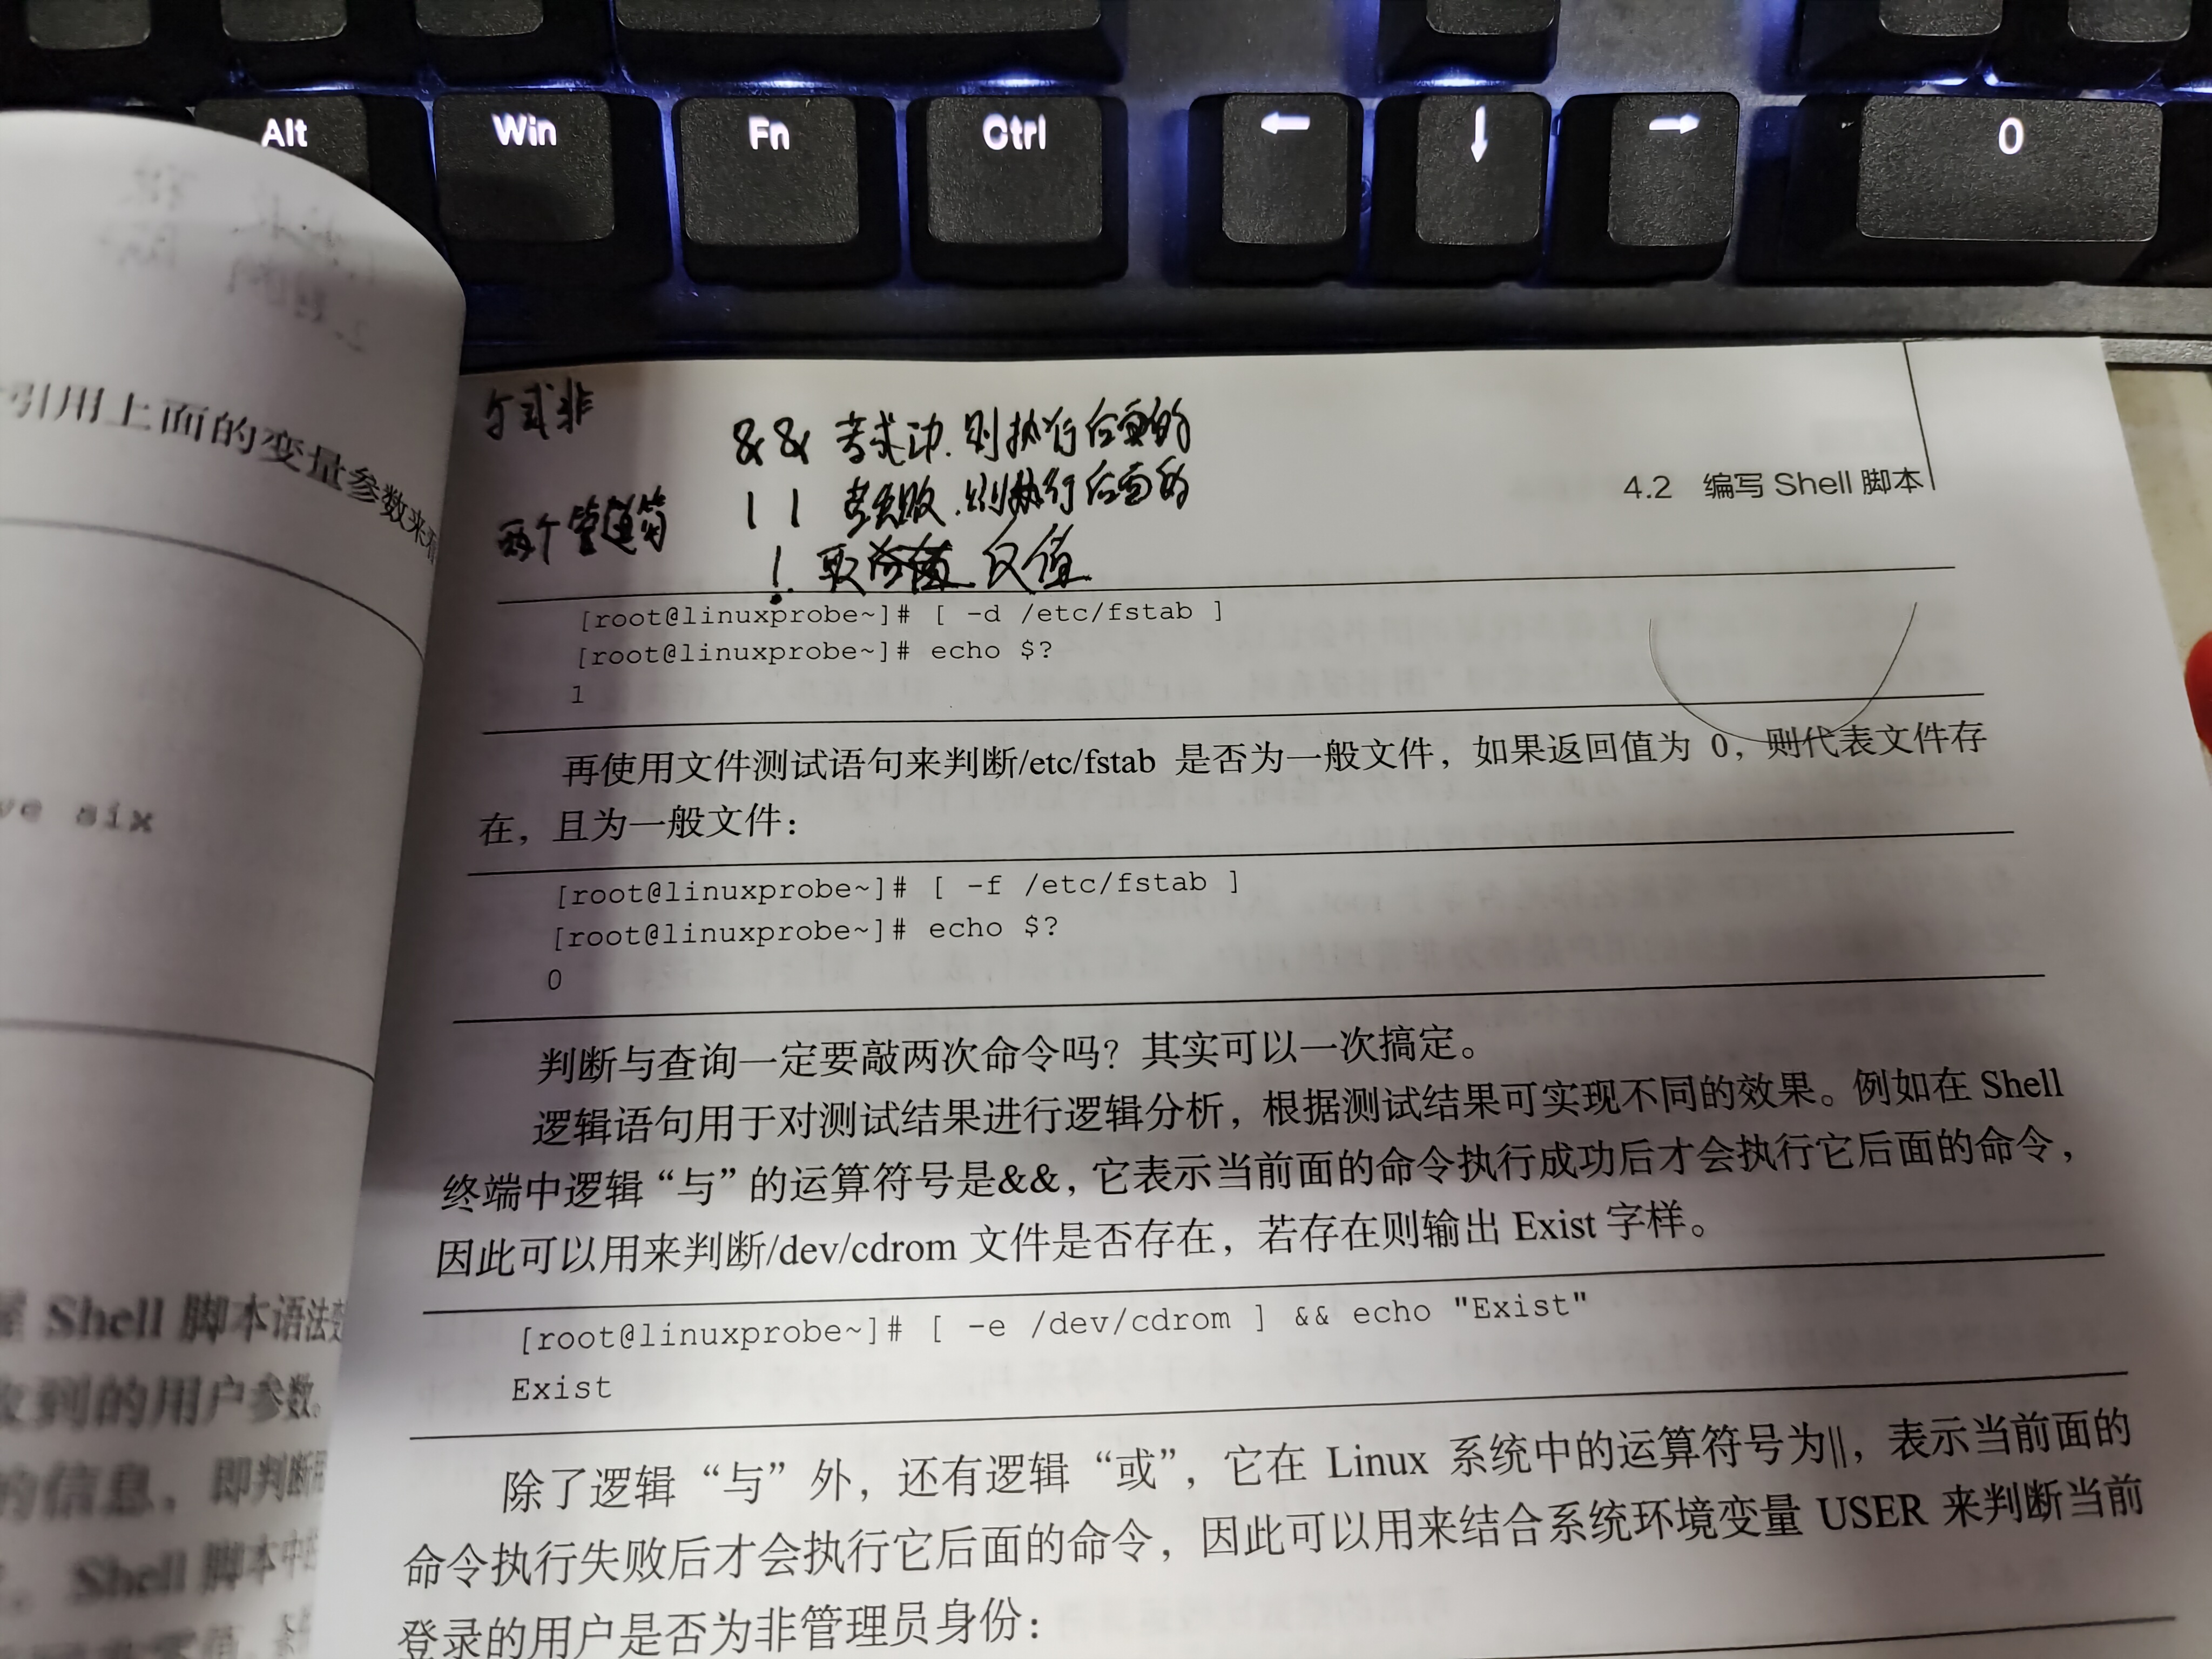 Alt Win Fn Ctrl ← ↓ → 0
引用上面的变量参数来
ve six
Shell 脚本语法
到的用户参数。
的信息，即判断用
Shell 脚本中
与或非
&& 若成功.则执行后面的
两个管道符 || 若失败.则执行后面的
! 取 反值
4.2 编写 Shell 脚本
[root@linuxprobe~]# [ -d /etc/fstab ]
[root@linuxprobe~]# echo $?
1
再使用文件测试语句来判断/etc/fstab 是否为一般文件，如果返回值为 0，则代表文件存
在，且为一般文件：
[root@linuxprobe~]# [ -f /etc/fstab ]
[root@linuxprobe~]# echo $?
0
判断与查询一定要敲两次命令吗？其实可以一次搞定。
逻辑语句用于对测试结果进行逻辑分析，根据测试结果可实现不同的效果。例如在 Shell
终端中逻辑“与”的运算符号是&&，它表示当前面的命令执行成功后才会执行它后面的命令，
因此可以用来判断/dev/cdrom 文件是否存在，若存在则输出 Exist 字样。
[root@linuxprobe~]# [ -e /dev/cdrom ] && echo "Exist"
Exist
除了逻辑“与”外，还有逻辑“或”，它在 Linux 系统中的运算符号为||，表示当前面的
命令执行失败后才会执行它后面的命令，因此可以用来结合系统环境变量 USER 来判断当前
登录的用户是否为非管理员身份：